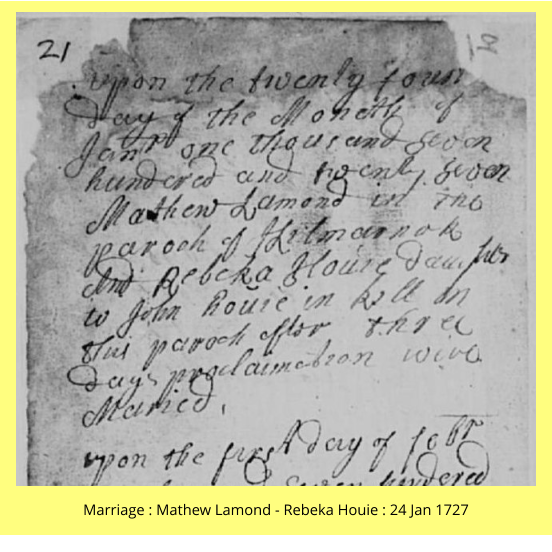 21
upon the twenty fourt
day of the Moneth of
Janr one thousand seven
hundered and twenty seven
Mathew Lamond in the
paroch of Kilmarnok
And Rebeka Houie daughter
to John houie in
this paroch after three
days proclaimation wire
Maried,
upon the first day of febr
hundered
Marriage : Mathew Lamond - Rebeka Houie : 24 Jan 1727